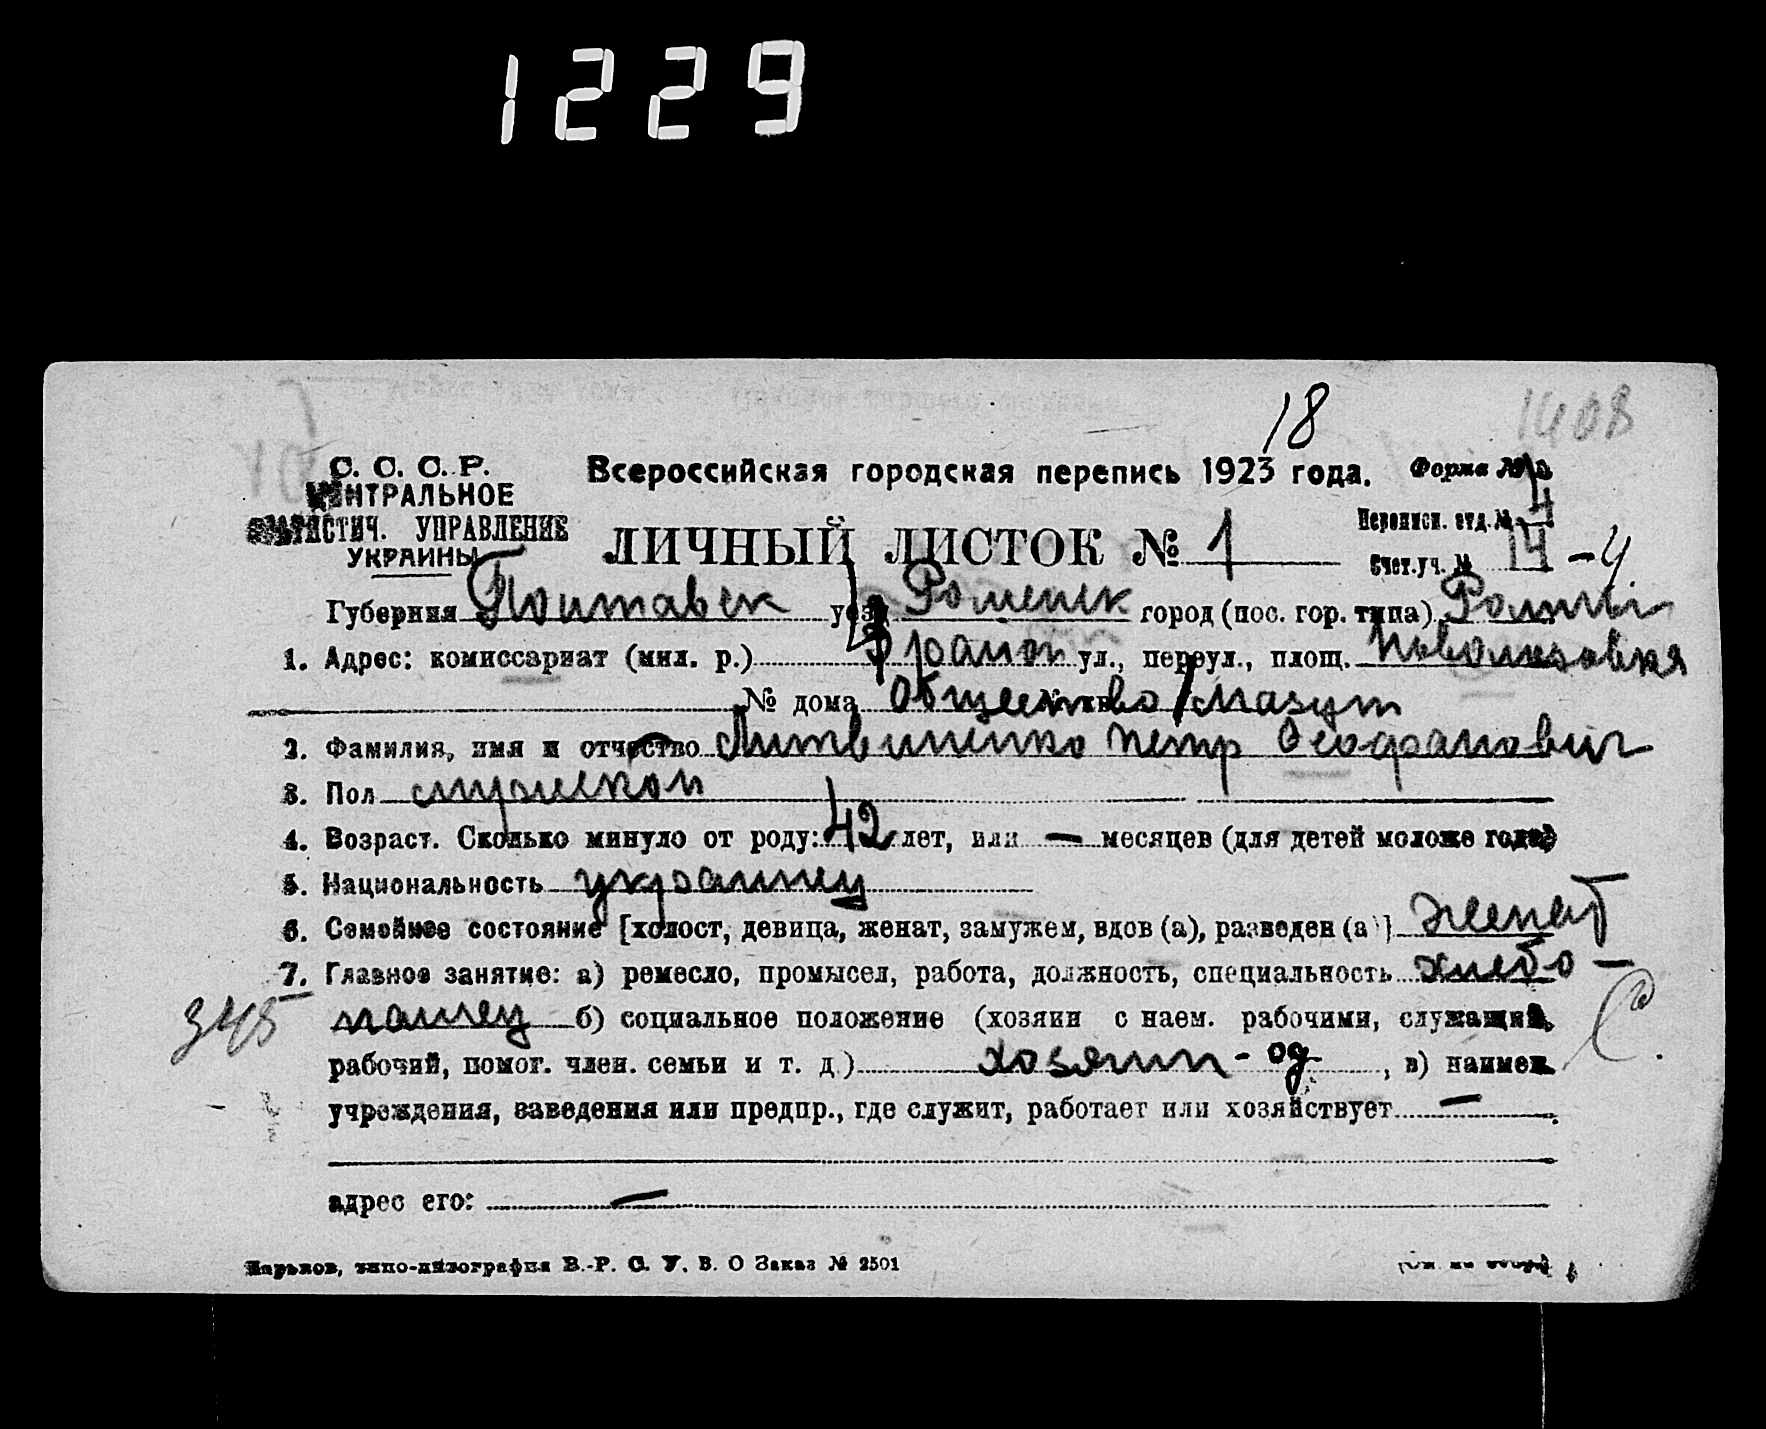 1229
18
1408
С. С. С. Р.
ЦЕНТРАЛЬНОЕ
СТАТИСТИЧ. УПРАВЛЕНИЕ
УКРАИНЫ
Всероссийская городская перепись 1923 года. Форма №
ЛИЧНЫЙ ЛИСТОК № 1
Переписн. отд. № 4
Счет. уч. № 14 - 4
Губерния Полтавск уезд Роменск город (пос. гор. типа) Ромны
1. Адрес: комиссариат (мил. р.) район ул., переул., площ.
№ дома Общество Мазут
2. Фамилия, имя и отчество Литвиненко Петр Феофанович
3. Пол мужской
4. Возраст. Сколько минуло от роду: 42 лет, или — месяцев (для детей моложе года)
5. Национальность украинец
6. Семейное состояние [холост, девица, женат, замужем, вдов (а), разведен (а)] женат
7. Главное занятие: а) ремесло, промысел, работа, должность, специальность хлебо-
345 пашец б) социальное положение (хозяин с наем. рабочими, служащий,
рабочий, помог. член. семьи и т. д.) хозяин-од , в) наимен.
учреждения, заведения или предпр., где служит, работает или хозяйствует —
адрес его: —
Харьков, типо-литография В.-Р. С. У. В. О Заказ № 2501